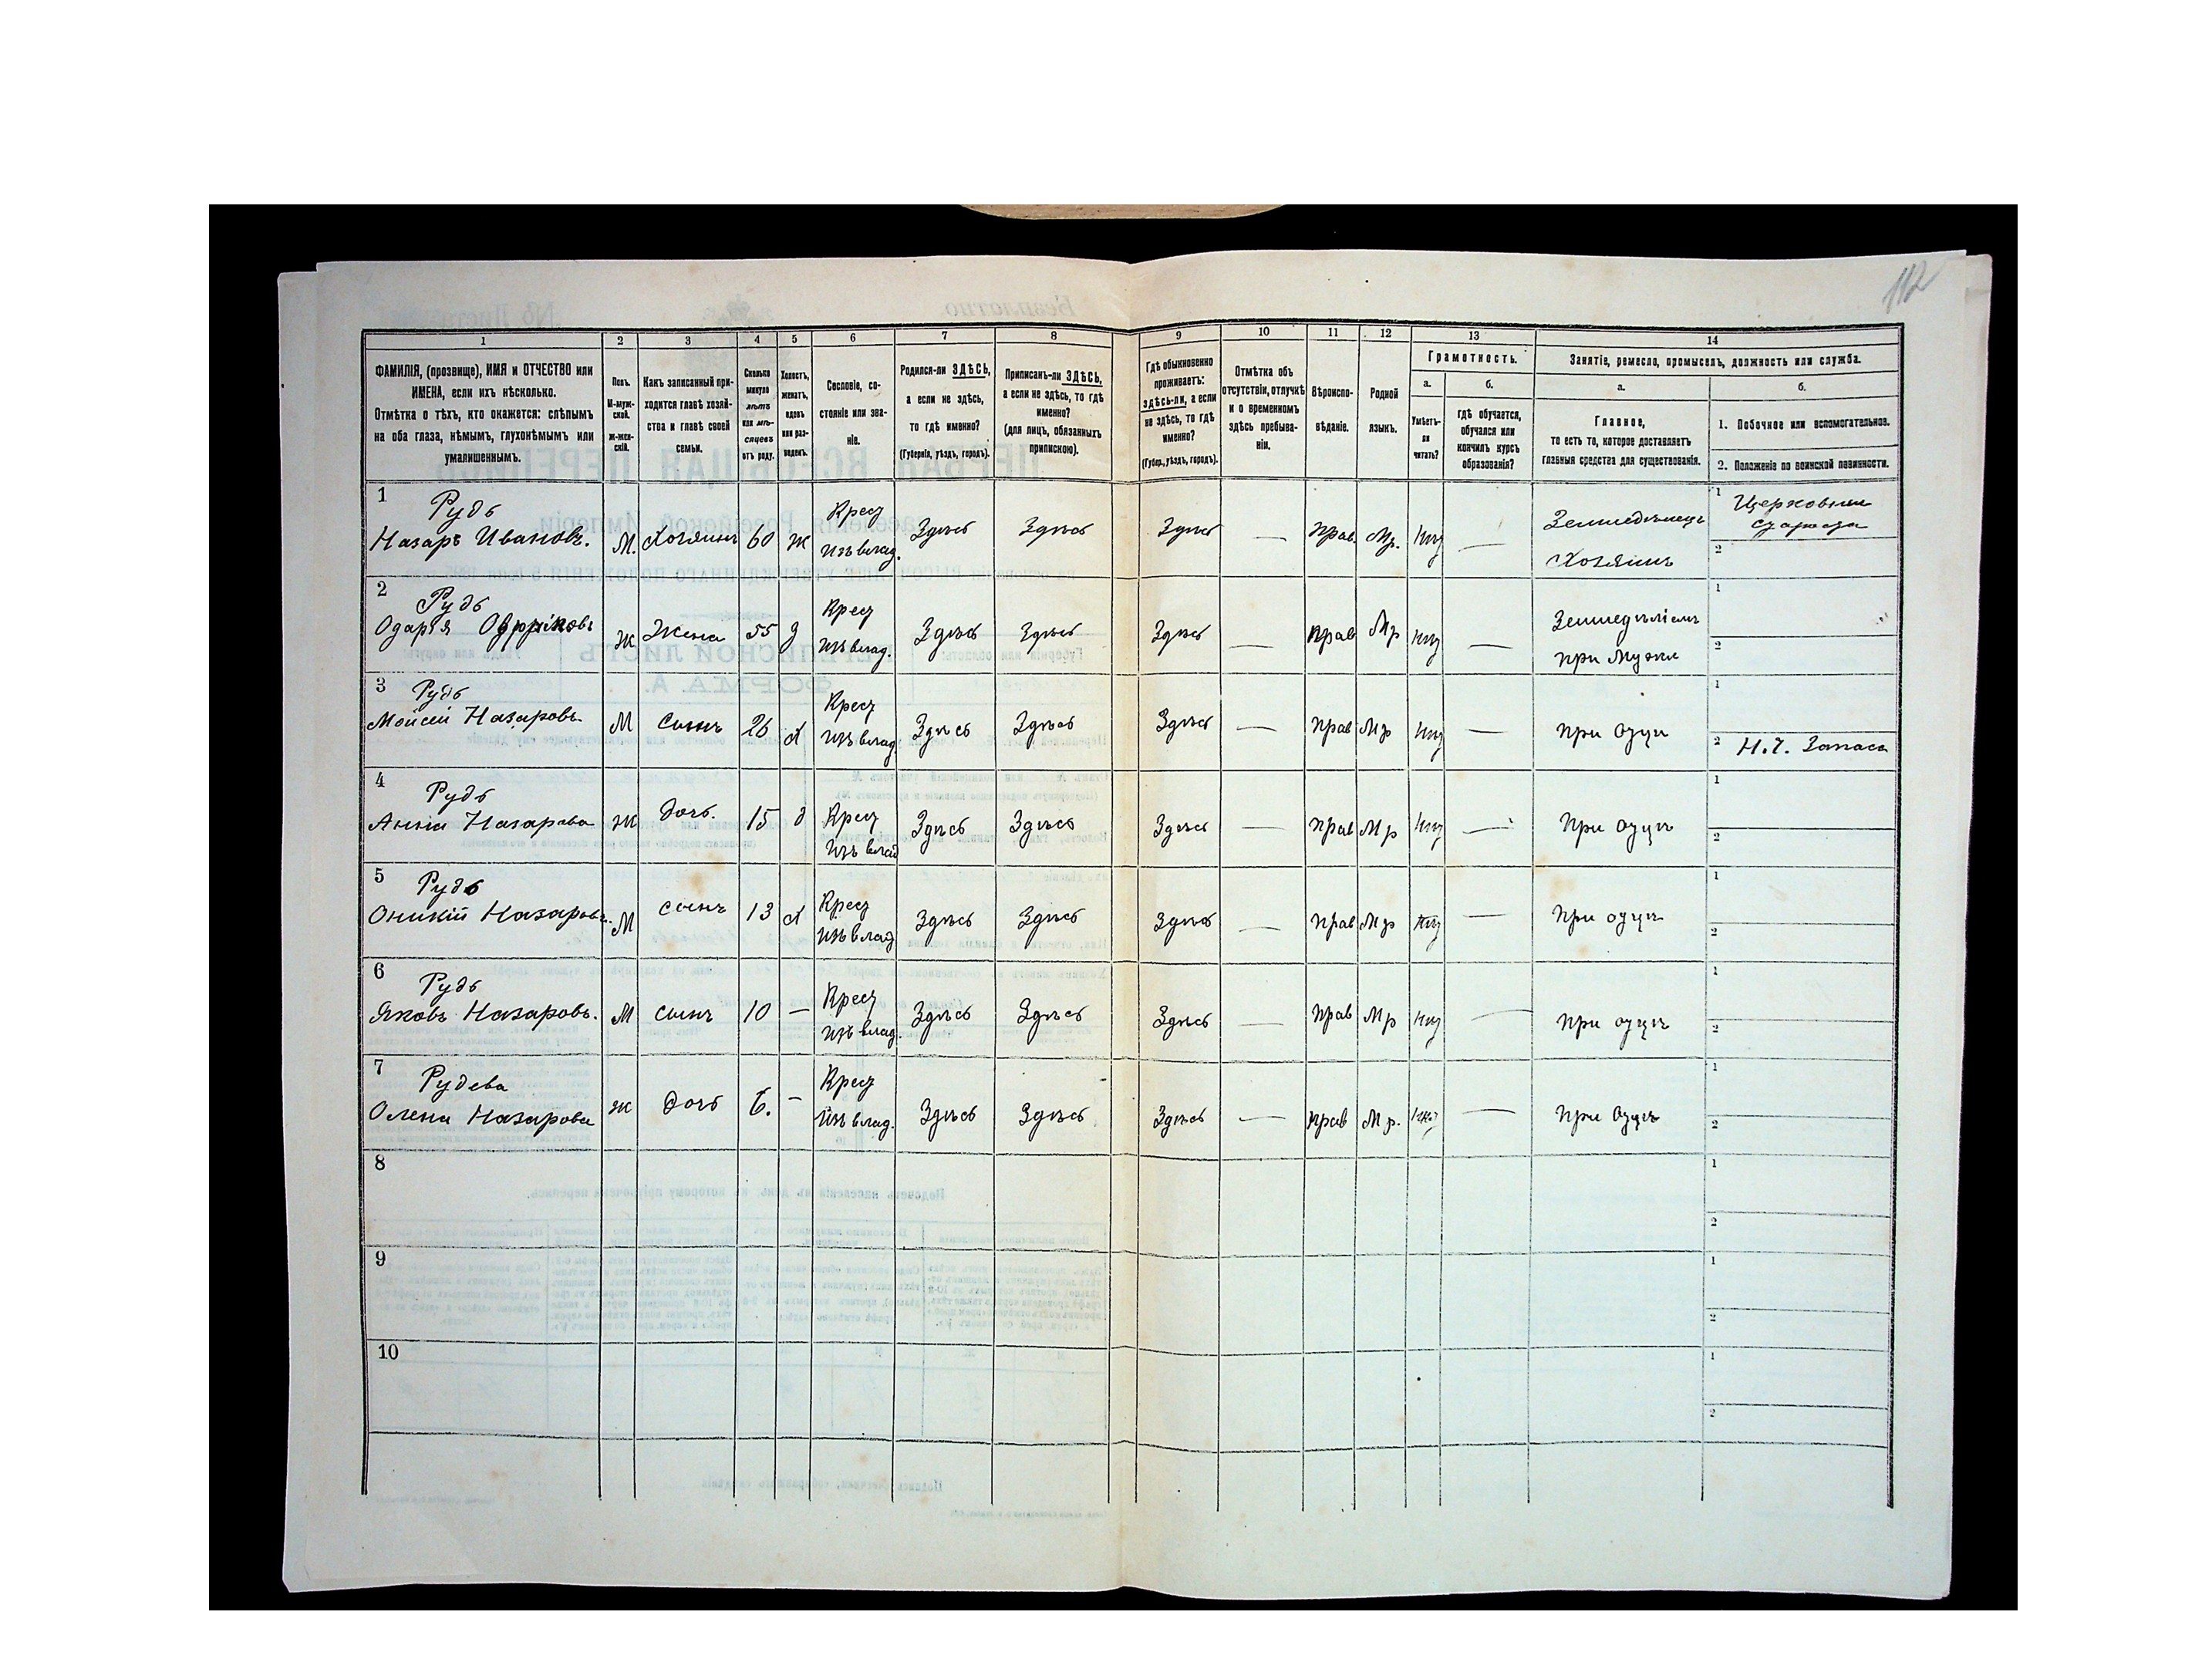 112
1 2 3 4 5 6 7 8 9 10 11 12 13 14
ФАМИЛІЯ, (прозвище), ИМЯ и ОТЧЕСТВО или
ИМЕНА, если ихъ нѣсколько.
Отмѣтка о тѣхъ, кто окажется: слѣпымъ
на оба глаза, нѣмымъ, глухонѣмымъ или
умалишеннымъ.
Полъ.
М-муж-
ской.
ж-жен-
скій.
Какъ записанный при-
ходится главѣ хозяй-
ства и главѣ своей
семьи.
Сколько
минуло
лѣтъ
или мѣ-
сяцевъ
отъ роду.
Холостъ,
женатъ,
вдовъ
или раз-
веденъ.
Сословіе, со-
стояніе или зва-
ніе.
Родился-ли ЗДѢСЬ,
а если не здѣсь,
то гдѣ именно?
(Губернія, уѣздъ, городъ).
Приписанъ-ли ЗДѢСЬ,
а если не здѣсь, то гдѣ
именно?
(для лицъ, обязанныхъ
припискою).
Гдѣ обыкновенно
проживаетъ:
здѣсь-ли, а если
не здѣсь, то гдѣ
именно?
(Губер., уѣздъ, городъ).
Отмѣтка объ
отсутствіи, отлучкѣ
и о временномъ
здѣсь пребыва-
ніи.
Вѣроиспо-
вѣданіе.
Родной
языкъ.
Грамотность.
а.
Умѣетъ-
ли
читать?
б.
гдѣ обучается,
обучался или
кончилъ курсъ
образованія?
Занятіе, ремесло, промыселъ, должность или служба.
а.
Главное,
то есть то, которое доставляетъ
главныя средства для существованія.
б.
1. Побочное или вспомогательное.
2. Положеніе по воинской повинности.
1 Рудь Крест 1 Церковный
Назаръ Ивановъ. М. Хозяинъ 60 ж изъ влад. Здѣсь Здѣсь Здѣсь — Прав. Мр. Нѣт — Земледѣлецъ староста
Хозяинъ 2
2 Рудь Крест 1
Ж Жена 55 з изъ влад. Здѣсь Здѣсь Здѣсь — Прав Мр Нѣт — Земледѣліемъ
при Мужѣ 2
3 Рудь Крест 1
Мойсей Назаровъ М Сынъ 26 х изъ влад Здѣсь Здѣсь Здѣсь — Прав Мр Нѣт — при Отцѣ
2 Н.Ч. Запаса
4 Рудь 1
Анна Назарова ж Дочь. 15 д Крест Здѣсь Здѣсь Здѣсь — Прав Мр Нѣт — При Отцѣ
изъ влад 2
5 Рудь Крест 1
Оникій Назаровъ. М Сынъ 13 х изъ влад Здѣсь Здѣсь Здѣсь — Прав Мр Нѣт — При отцѣ
2
6 Рудь Крест 1
Яковъ Назаровъ. М Сынъ 10 — изъ влад. Здѣсь Здѣсь Здѣсь — Прав Мр Нѣт — При отцѣ
2
7 Рудева Крест 1
Олена Назарова ж Дочь 6. — Изъ влад. Здѣсь Здѣсь Здѣсь — Прав Мр. Нѣт — При Отцѣ
2
8 1
2
9 1
2
10 1
2